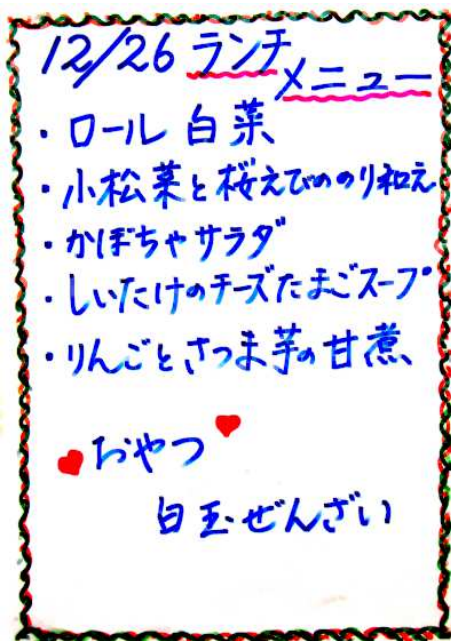 12/26 ランチメニュー
・ロール白菜
・小松菜と桜えびののり和え
・かぼちゃサラダ
・しいたけのチーズたまごスープ
・りんごとさつま芋の甘煮
おやつ
白玉ぜんざい